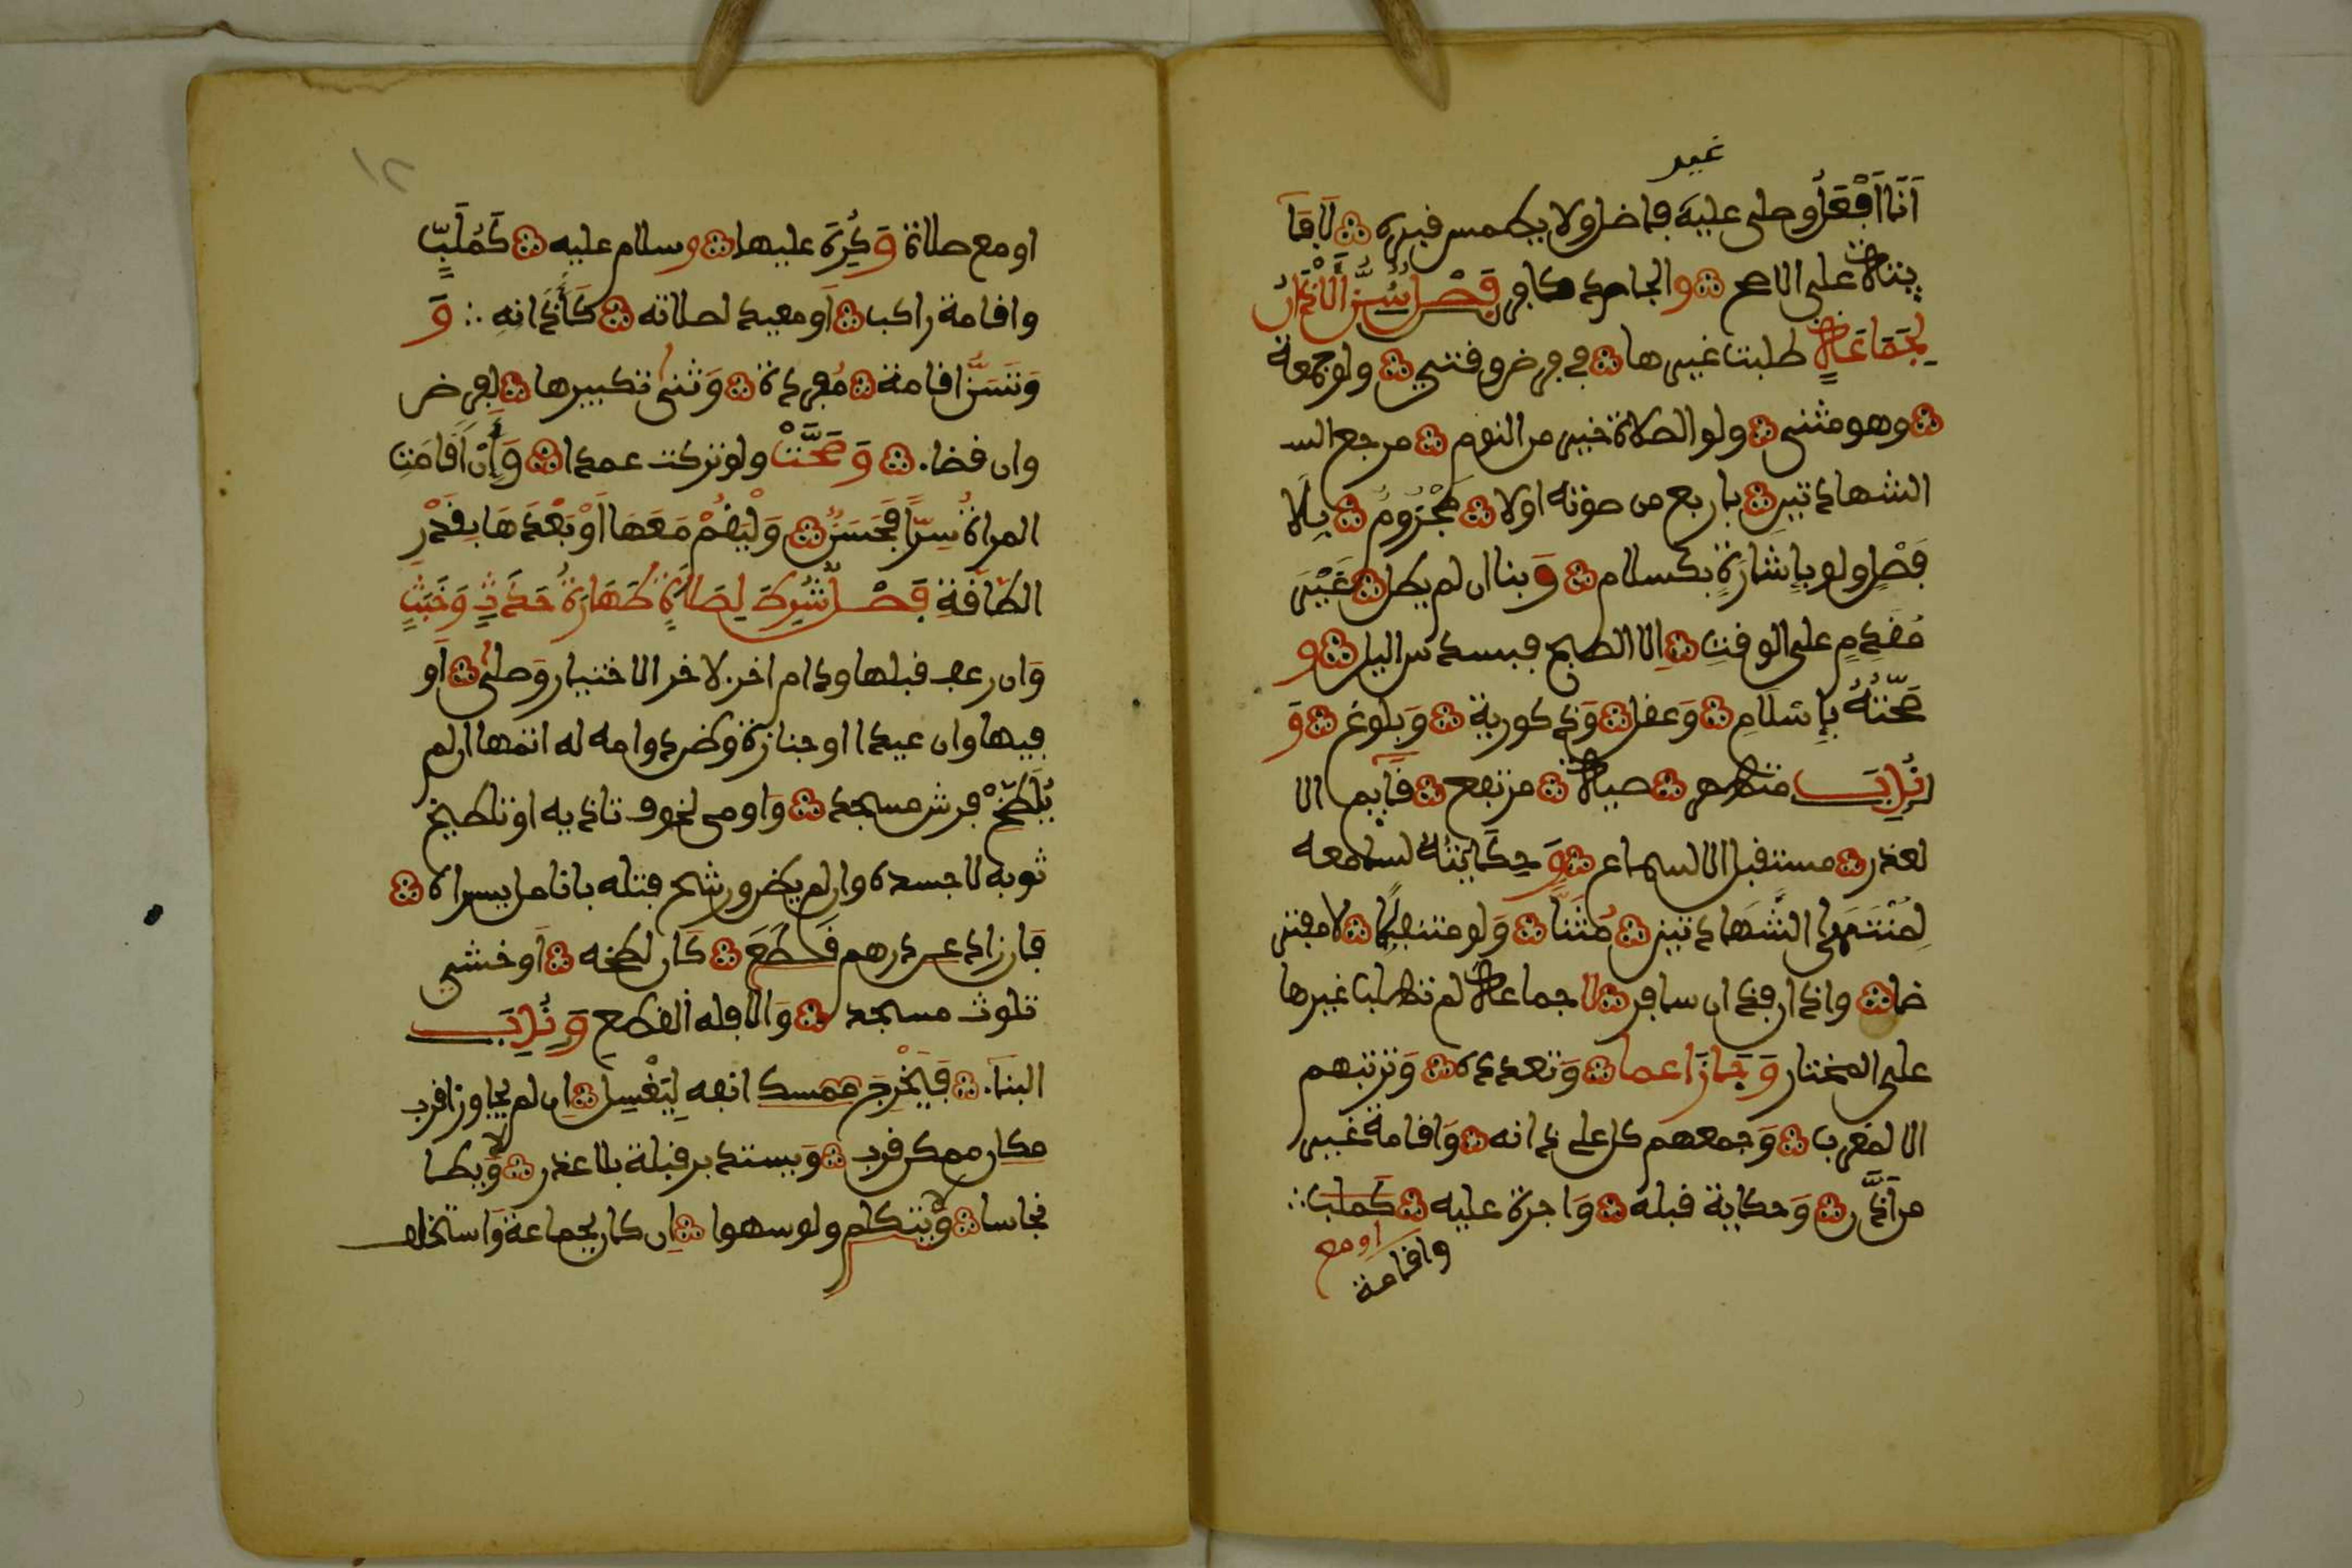 غير
انا افعل وصلى عليه فاضل ولا يطمس فبره لا فا
يتاة على الاصح والجاحد كافر فصل سن الاذان
لجماعة طلبت غيرها في فرض وفتي ولو جمعة
وهو مثنى ولو الصلاة خير من النوم مرجع الـ
الشهادتين بارفع من صوته اولا مجزوم بلا
فصل ولو باشارة بكسلام وبنا ان لم يطل غير
مقدم على الوقت الا الصبح فبسدس اليل و
صحته باسلام وعفل وذكورية وبلوغ و
ندب متطهر صيت مرتفع قايم الا
لعذر مستقبل الا لاسماع وحكايته لسامعه
لمنتهى الشهادتين مثنا ولو متنفلا لا مفتر
ضا واذان فذ ان سافر لا جماعة لم تطلب غيرها
على المختار وجاز اعما وتعدده وترتبهم
الا المغرب وجمعهم كل على اذانه وافامة غير
من اذن وحكاية فبله واجرة عليه كملب
او مع
وافامة
١٢
او مع صلاة وكره عليها وسلام عليه كملب
وافامة راكب او معيد لصلاته كاذانه و
وتسن افامة مفردة وثني تكبيرها لفرض
وان فضا وصحت ولو تركت عمدا وان افامت
المراة سرا فحسن وليفم معها او بعدها بفدر
الطافة فصل شرط لصلاة طهارة حدث وخبث
وان رعف فبلها ودام اخر لاخر الاختيار وصلى او
فيها وان عيدا او جنازة وظن دوامه له اتمها ان لم
يلطخ فرش مسجد واومى لخوف تاذيه او تلطيخ
ثوبه لا جسده وان لم يظن ورشح فتله بانامل يسراه
فان زاد عن درهم فطع كان لطخه او خشي
تلوث مسجد والا فله الفطع وندب
البنا فيخرج ممسك انفه ليغسل ان لم يجاوز افرب
مكان ممكن فرب ويستدبر فبلة بلا عذر ويطا
نجاسا ويتكلم ولو سهوا ان كان بجماعة واستخلف